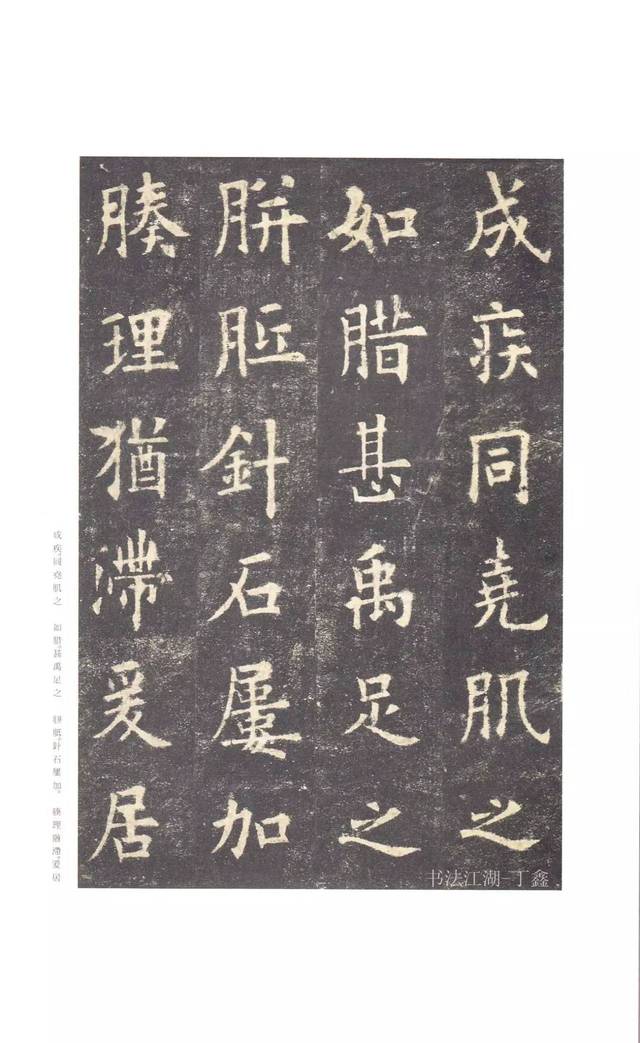 成疾同堯肌之
如腊甚禹足之
胼胝針石屢加
腠理猶滯爰居
成疾。同堯肌之 如腊。甚禹足之 胼胝。針石屢加。 腠理猶滯。爰居
书法江湖-丁鑫